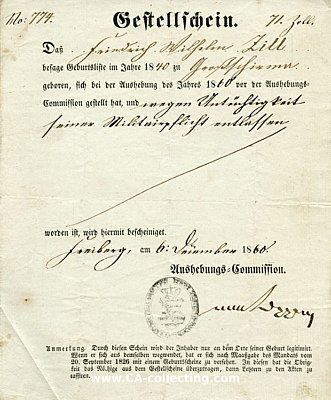 No: 774.
Gestellschein.
71. Zoll.
Daß Friedrich Wilhelm Zill
besage Geburtsliste im Jahre 1840 zu Großschirma
geboren, sich bei der Aushebung des Jahres 1860 vor der Aushebungs-
Commission gestellt hat, und wegen Untüchtigkeit
seiner Militairpflicht entlassen
worden ist, wird hiermit bescheiniget.
Freiberg, am 6. December 1860.
Aushebungs-Commission.
Anmerkung. Durch diesen Schein wird der Inhaber nur an dem Orte seiner Geburt legitimirt.
Wenn er sich aus demselben wegwendet, hat er sich nach Maaßgabe des Mandats vom
20. September 1826 mit einem Gestellscheine zu versehen. In diesen hat die Obrig-
keit das Nöthige aus dem Gestellscheine überzutragen, dann Letztern zu den Akten zu
cassiren.
www.CA-collecting.com